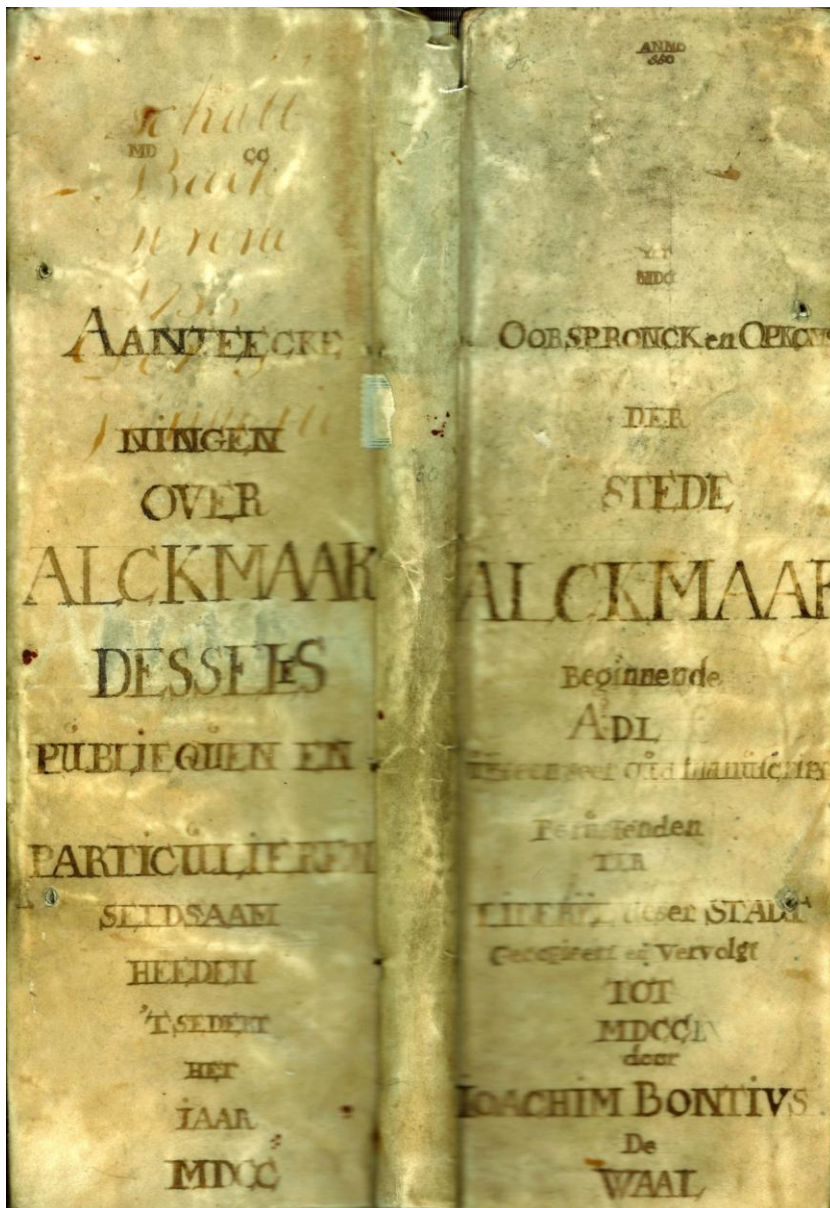 schutt
MD CC
Back
AANTEECKE
NINGEN
OVER
ALCKMAAR
DESSELES
PUBLIEQUEN EN
PARTICULIEREN
SELDSAAM
HEEDEN
'T SEDERT
HET
IAAR
MDCC
ANNO
MDC
OORSPRONCK en OPKOMS
DER
STEDE
ALCKMAAR
Beginnende
ADL
een seer oud manuscript
Berustenden
TER
LIBERIE deser STADT
Gecopieert en Vervolgt
TOT
MDCC
door
IOACHIM BONTIVS
De
WAAL